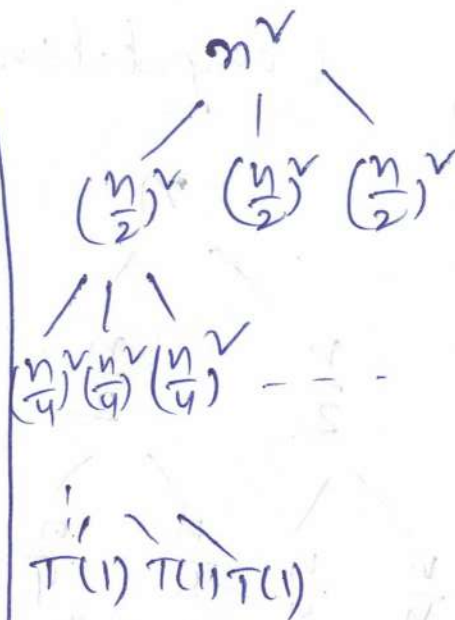 n²
(n/2)² (n/2)² (n/2)²
(n/4)² (n/4)² (n/4)² - - -
T(1) T(1) T(1)